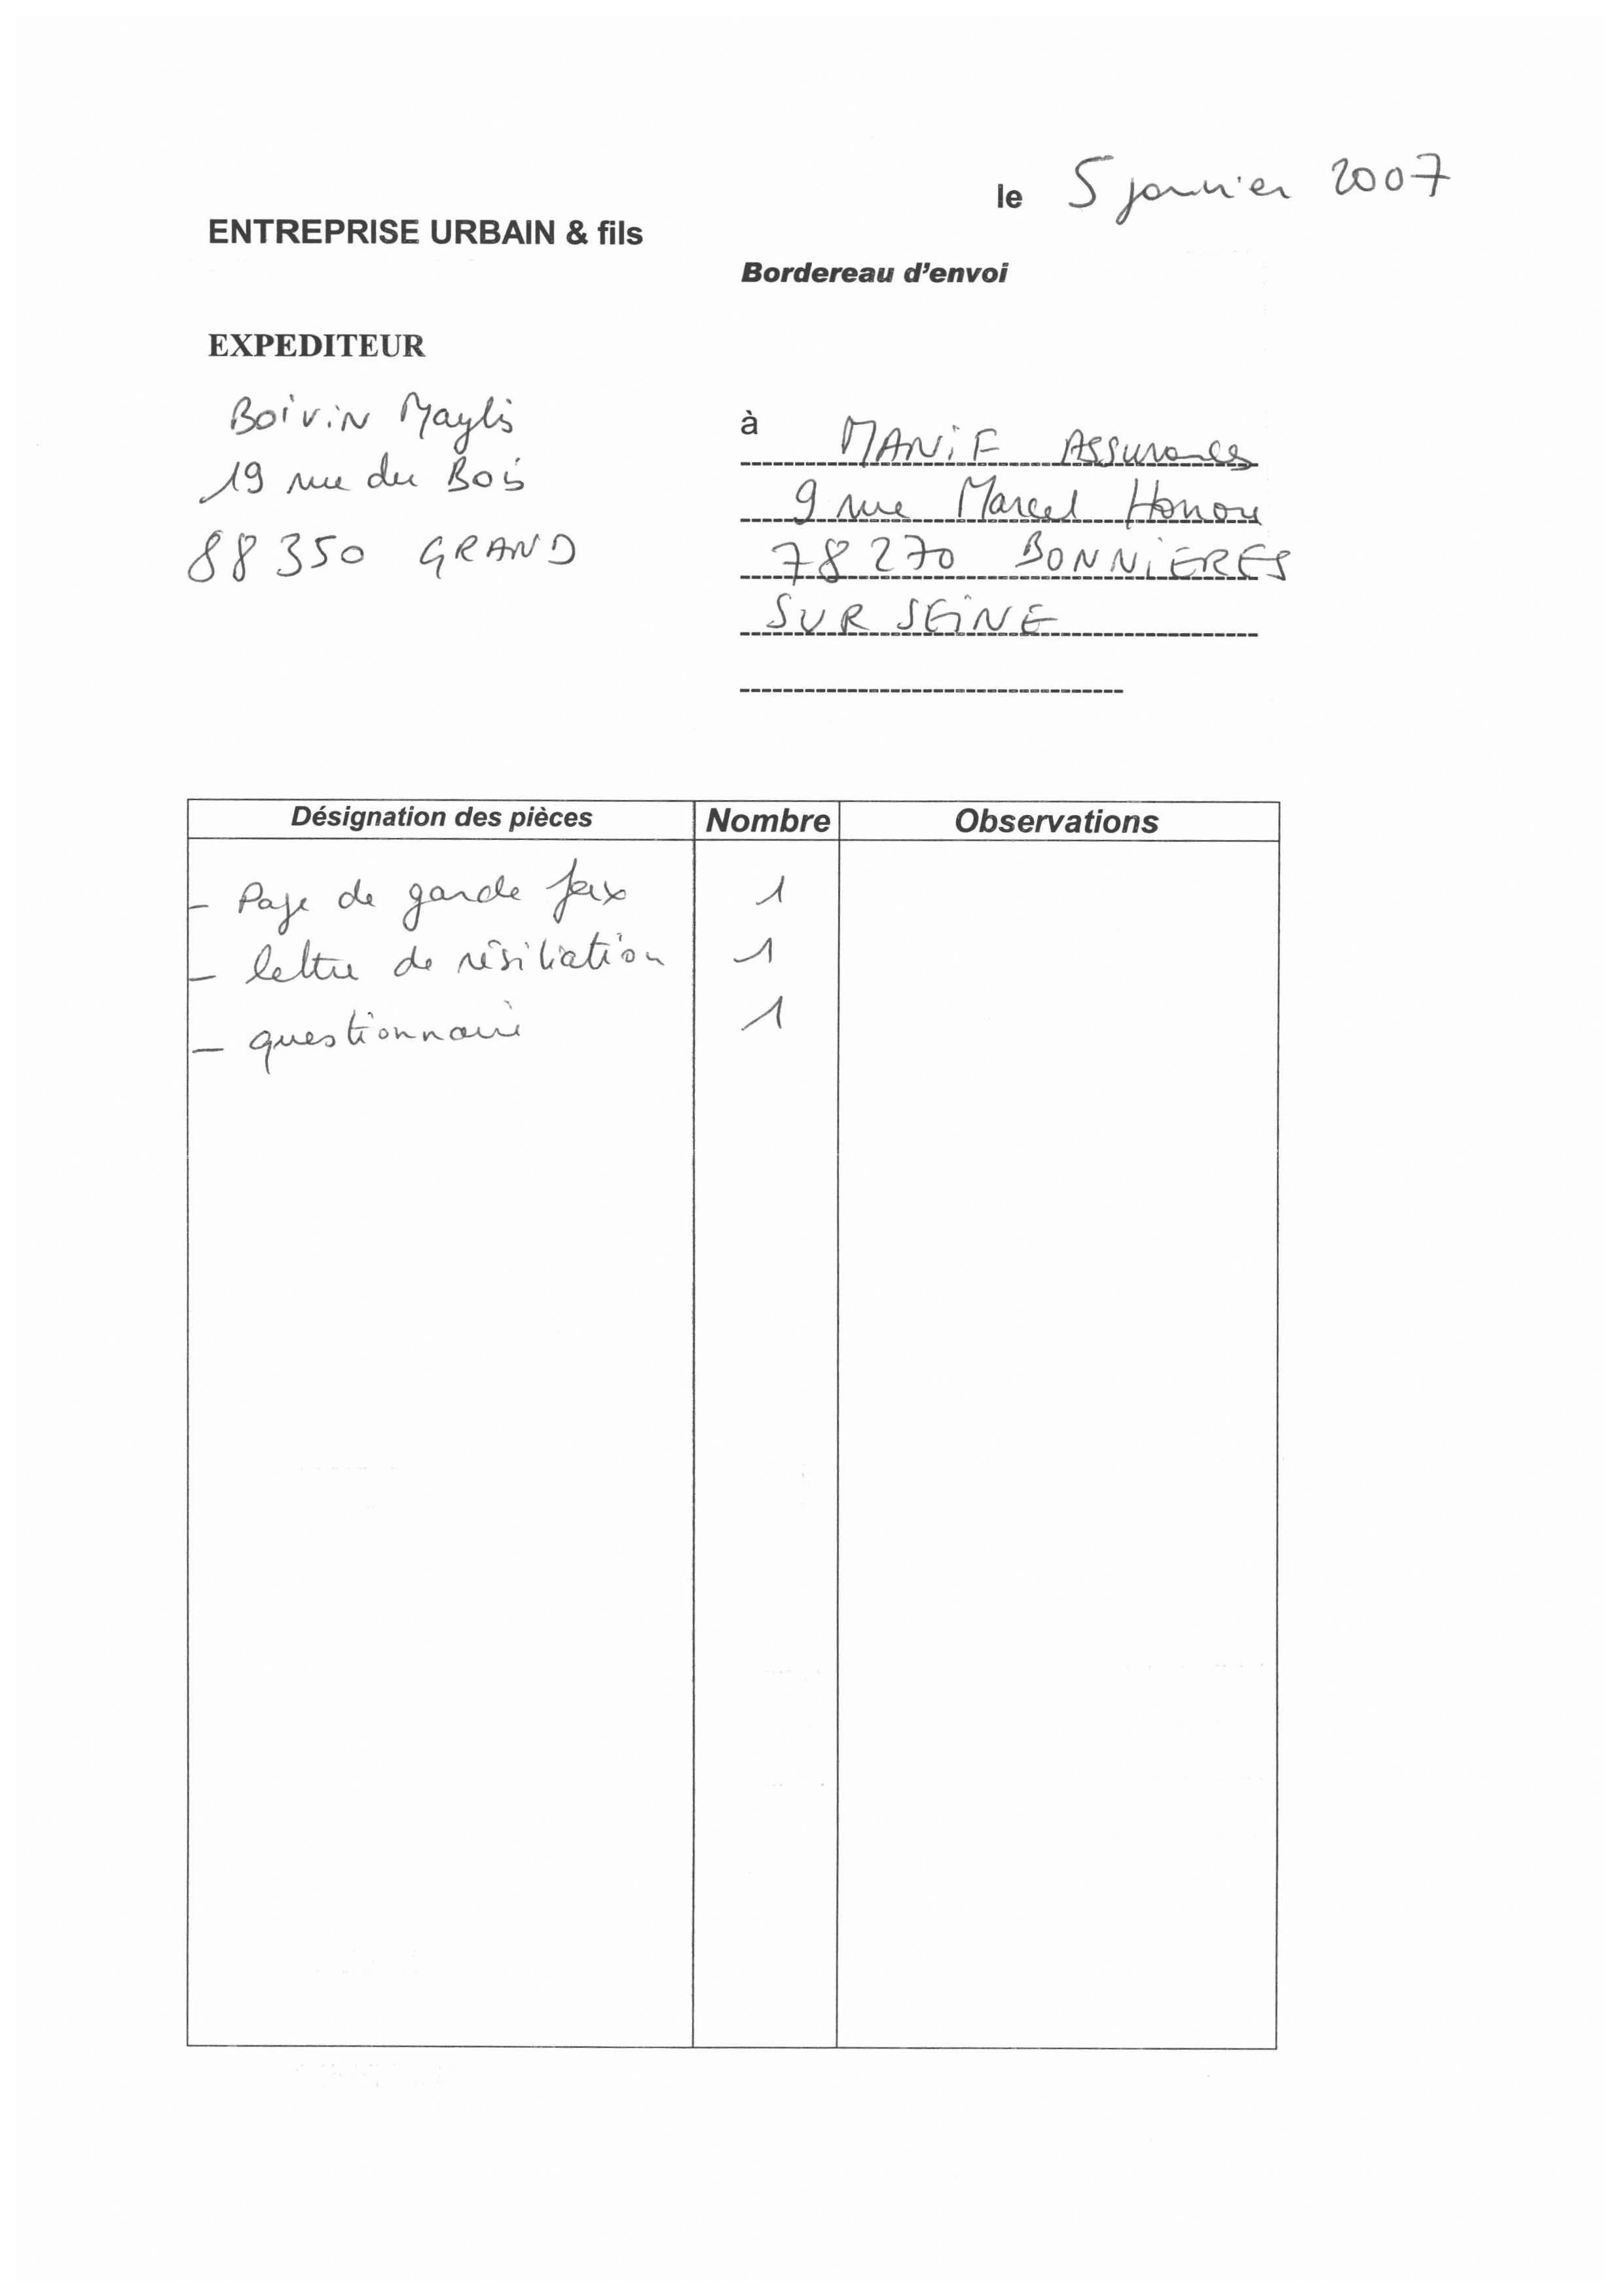 le 5 janvier 2007
ENTREPRISE URBAIN & fils
Bordereau d'envoi
EXPEDITEUR
Boivin Maylis
19 rue du Bois
88350 GRAND
à MANiF Assurances
9 rue Marcel Honoré
78270 BONNiERES
SUR SEiNE
Désignation des pièces Nombre Observations
- Page de garde fax 1
- lettre de résiliation 1
- questionnaire 1